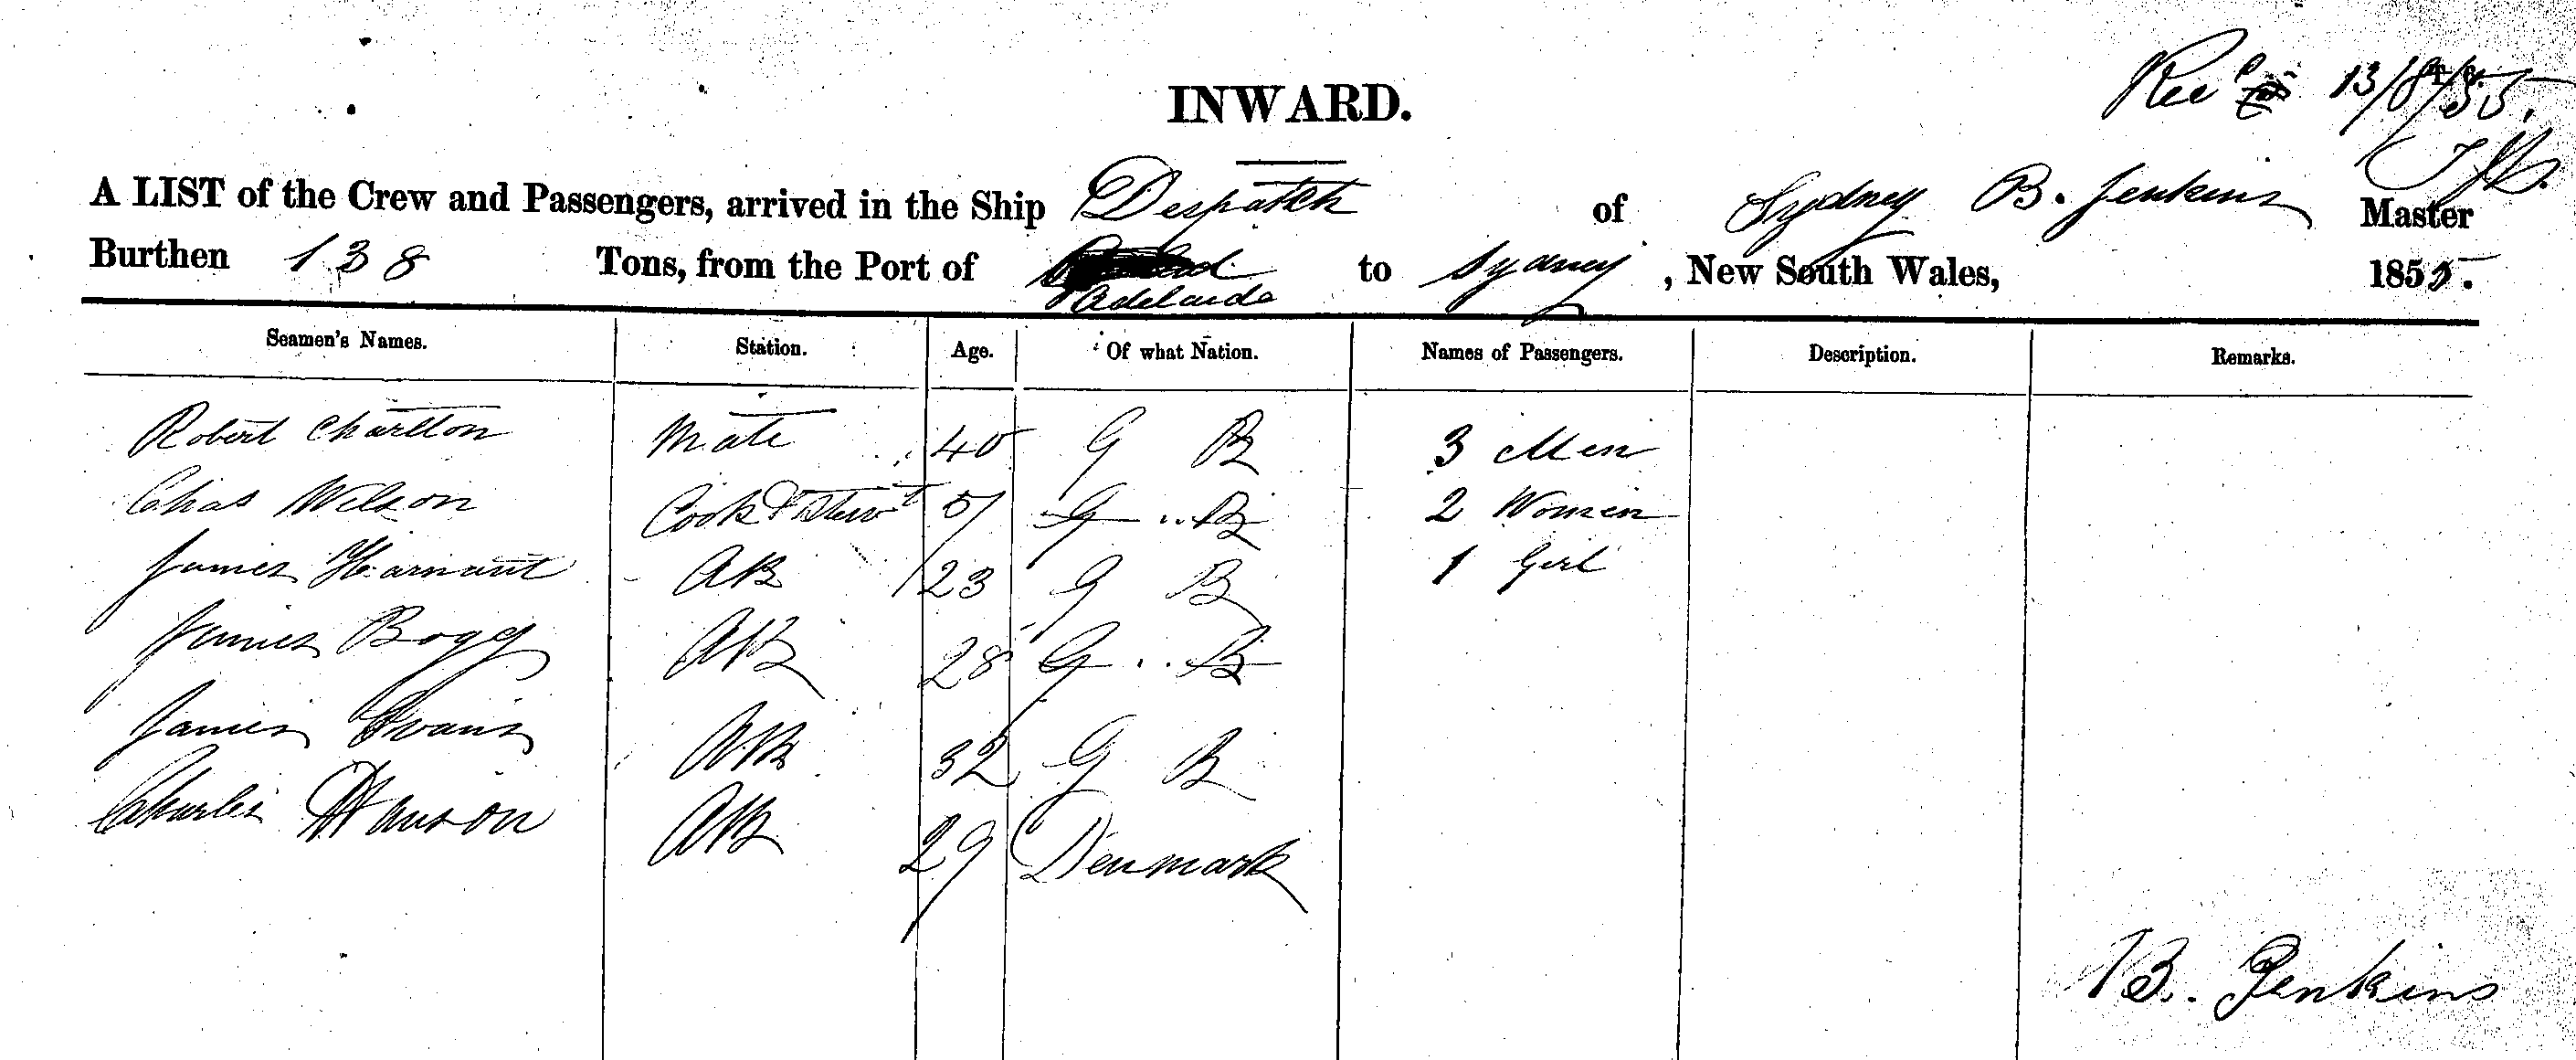 Recd 13/8/55.
INWARD.
A LIST of the Crew and Passengers, arrived in the Ship Despatch of Sydney B. Jenkins Master
Burthen 138 Tons, from the Port of Adelaide to Sydney, New South Wales, 1855.
Seamen's Names. Station. Age. Of what Nation. Names of Passengers. Description. Remarks.
Robert Charlton Mate 40 G B 3 Men
Chas Wilson Cook & Stewd 51 G B 2 Women
James AB 23 G B 1 Girl
James Bogg AB 28 G B
James Evans AB 32 G B
Charles Hanson AB 29 Denmark
B. Jenkins